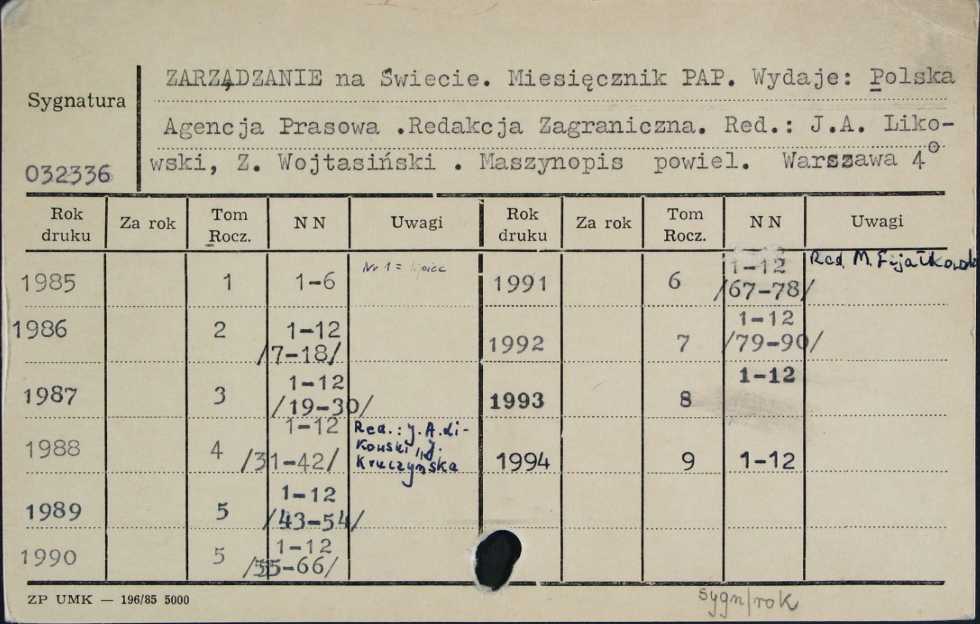 ZARZĄDZANIE na Świecie. Miesięcznik PAP. Wydaje: Polska
Sygnatura
Agencja Prasowa .Redakcja Zagraniczna. Red.: J.A. Liko-
032336
wski, Z. Wojtasiński . Maszynopis powiel. Warszawa 4°
Rok druku Za rok Tom Rocz. N N Uwagi Rok druku Za rok Tom Rocz. N N Uwagi
1985 1 1-6 Nr 1 = lipiec 1991 6 1-12 /67-78/ Red. M. Fijałkowski
1986 2 1-12 /7-18/ 1992 7 /79-90/ 1-12
1987 3 1-12 /19-30/ 1993 8 1-12
1988 4 1-12 /31-42/ Red.: J.A. Li-
kowski, J.
Kruczyńska 1994 9 1-12
1989 5 1-12 /43-54/
1990 5 1-12 /55-66/
ZP UMK — 196/85 5000
sygn/rok